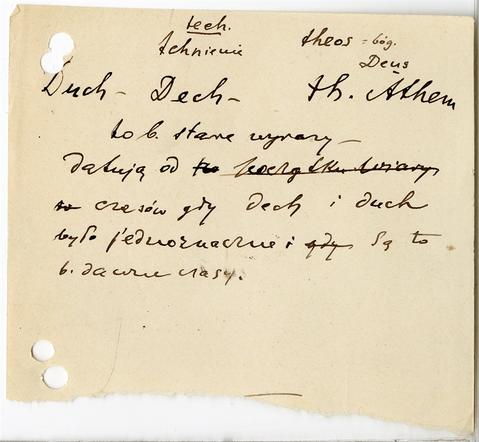 tech.
tchnienie theos = bóg.
Deus
Duch – Dech – th. Athem
to b. stare wyrazy –
datują od początku wiary
czasów gdy dech i duch
było jednoznacznie i gdy są to
b. dawne czasy.